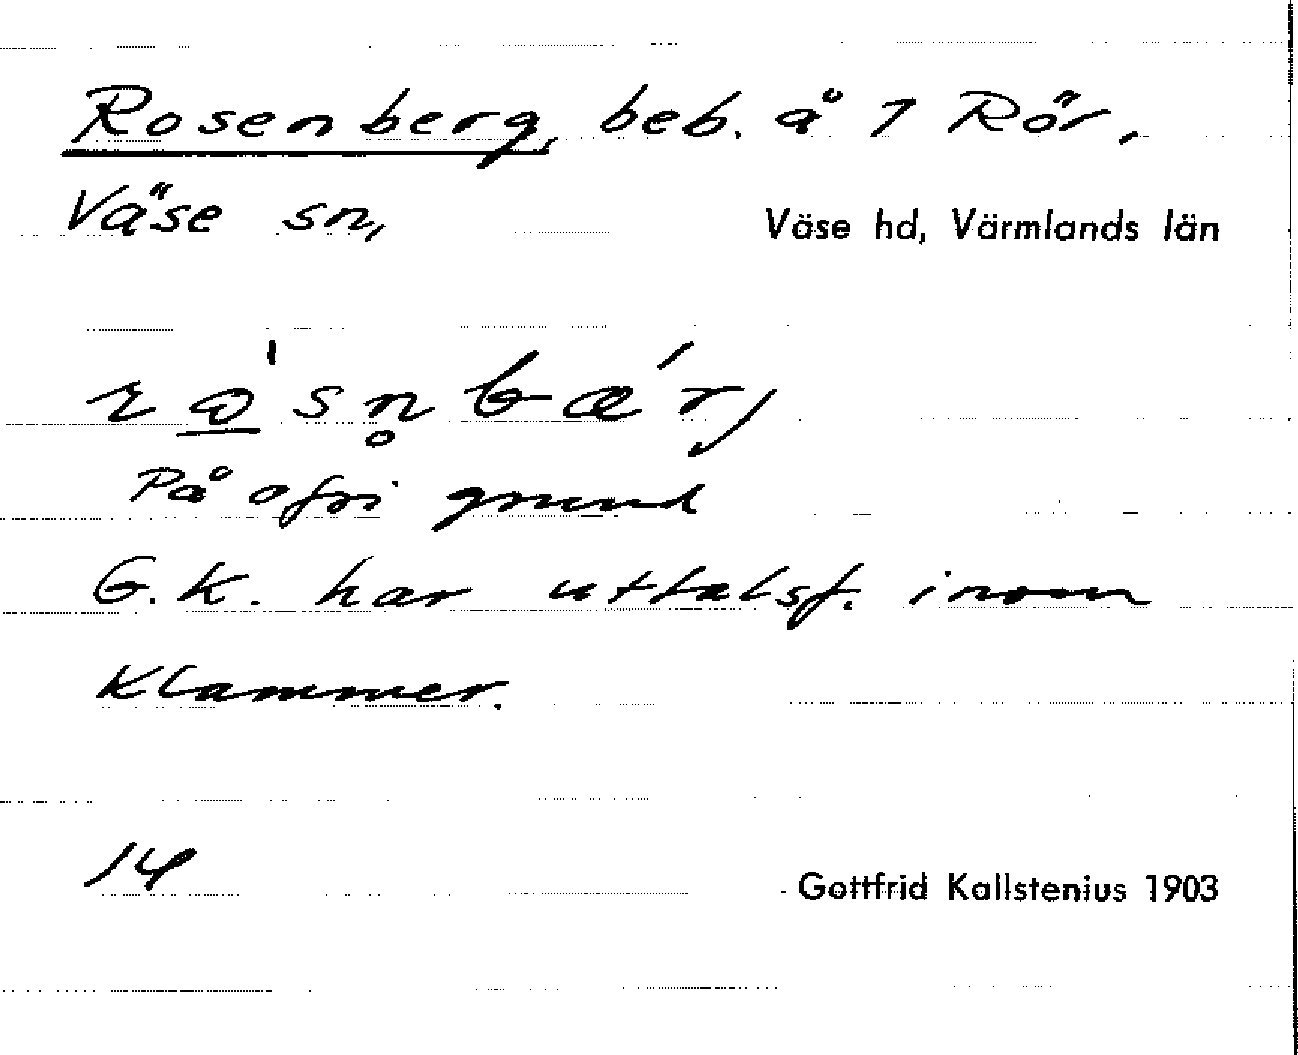 Rosenberg, beb. å 1 Rör,
Väse sn, Väse hd, Värmlands län
På ofri grund
G.K. har uttalsf. inom
Klammer.
14 Gottfrid Kallstenius 1903